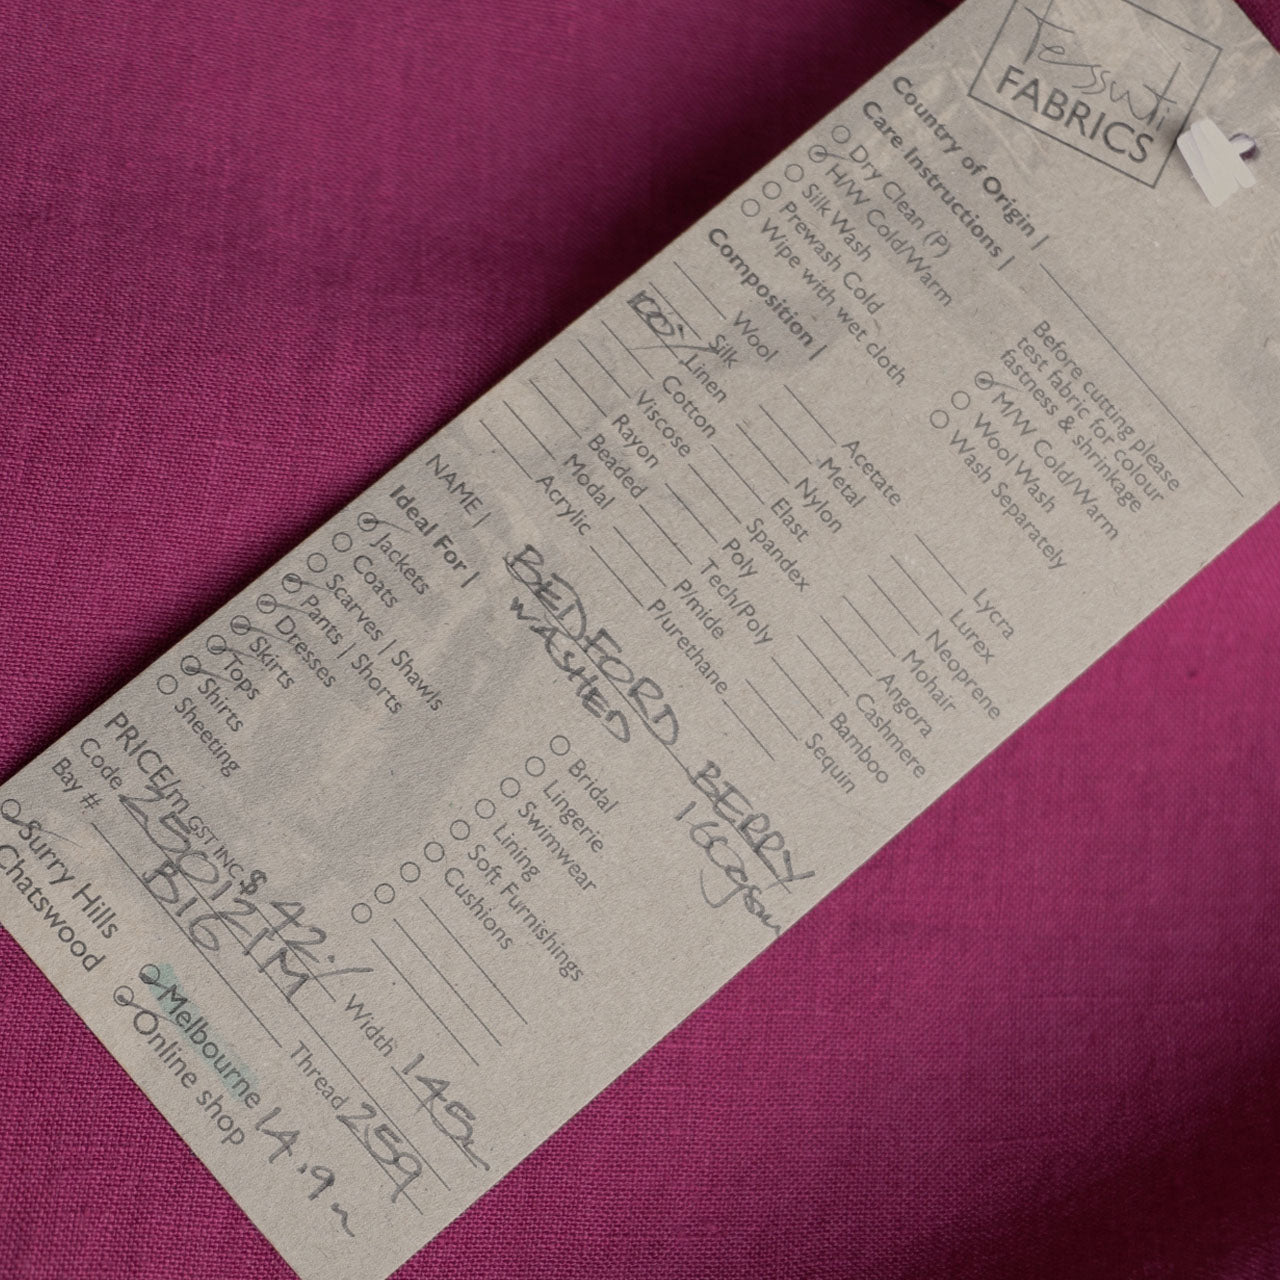 Tessuti
FABRICS
Country of Origin |
Care Instructions |
Dry Clean (P)
H/W Cold/Warm
Silk Wash
Prewash Cold
Wipe with wet cloth
Before cutting please
test fabric for colour
fastness & shrinkage
M/W Cold/Warm
Wool Wash
Wash Separately
Composition |
Wool
Silk
100% Linen
Cotton
Viscose
Rayon
Beaded
Modal
Acrylic
Acetate
Metal
Nylon
Elast
Spandex
Poly
Tech/Poly
P/mide
P/urethane
Lycra
Lurex
Neoprene
Mohair
Angora
Cashmere
Bamboo
Sequin
NAME | BEDFORD BERRY
WASHED 160gsm
Ideal For |
Jackets
Coats
Scarves | Shawls
Pants | Shorts
Dresses
Skirts
Tops
Shirts
Sheeting
Bridal
Lingerie
Swimwear
Lining
Soft Furnishings
Cushions
PRICE/m GST INC $ 42.- Width 145
Code 250121M Thread 259
Bay # B16
Surry Hills
Chatswood
Melbourne 14.9m
Online shop